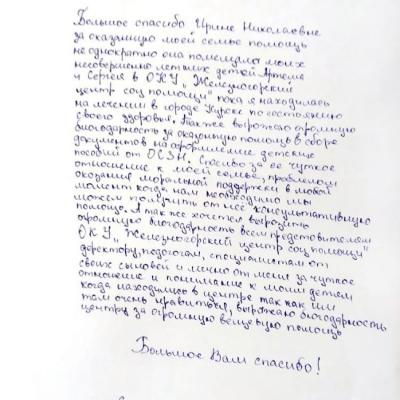 Большое спасибо Ирине Николаевне
за оказанную моей семье помощь
неоднократно она помещала моих
несовершенно летних детей Артема
и Сергея в ОКУ „Железногорский
центр соц помощи" пока я находилась
на лечении в городе Курске по состоянию
своего здоровья. Также выражаю огромную
благодарность за оказанную помощь в сборе
документов на оформление детских
пособий от ОСЗН. Спасибо за ее чуткое
отношение к моей семье, проблемам
оказания моральной поддержки в любой
момент когда нам необходимо мы
можем получить от нее консультативную
помощь. А так же хочется выразить
огромную благодарность всем представителям
ОКУ „Железногорский центр соц помощи"
директору, педагогам, специалистам от
своих сыновей и лично от меня за чуткое
отношение и понимание к моим детям
когда находились в центре так как им
там очень нравиться, выражаю благодарность
центру за огромную вещевую помощь
Большое Вам спасибо!